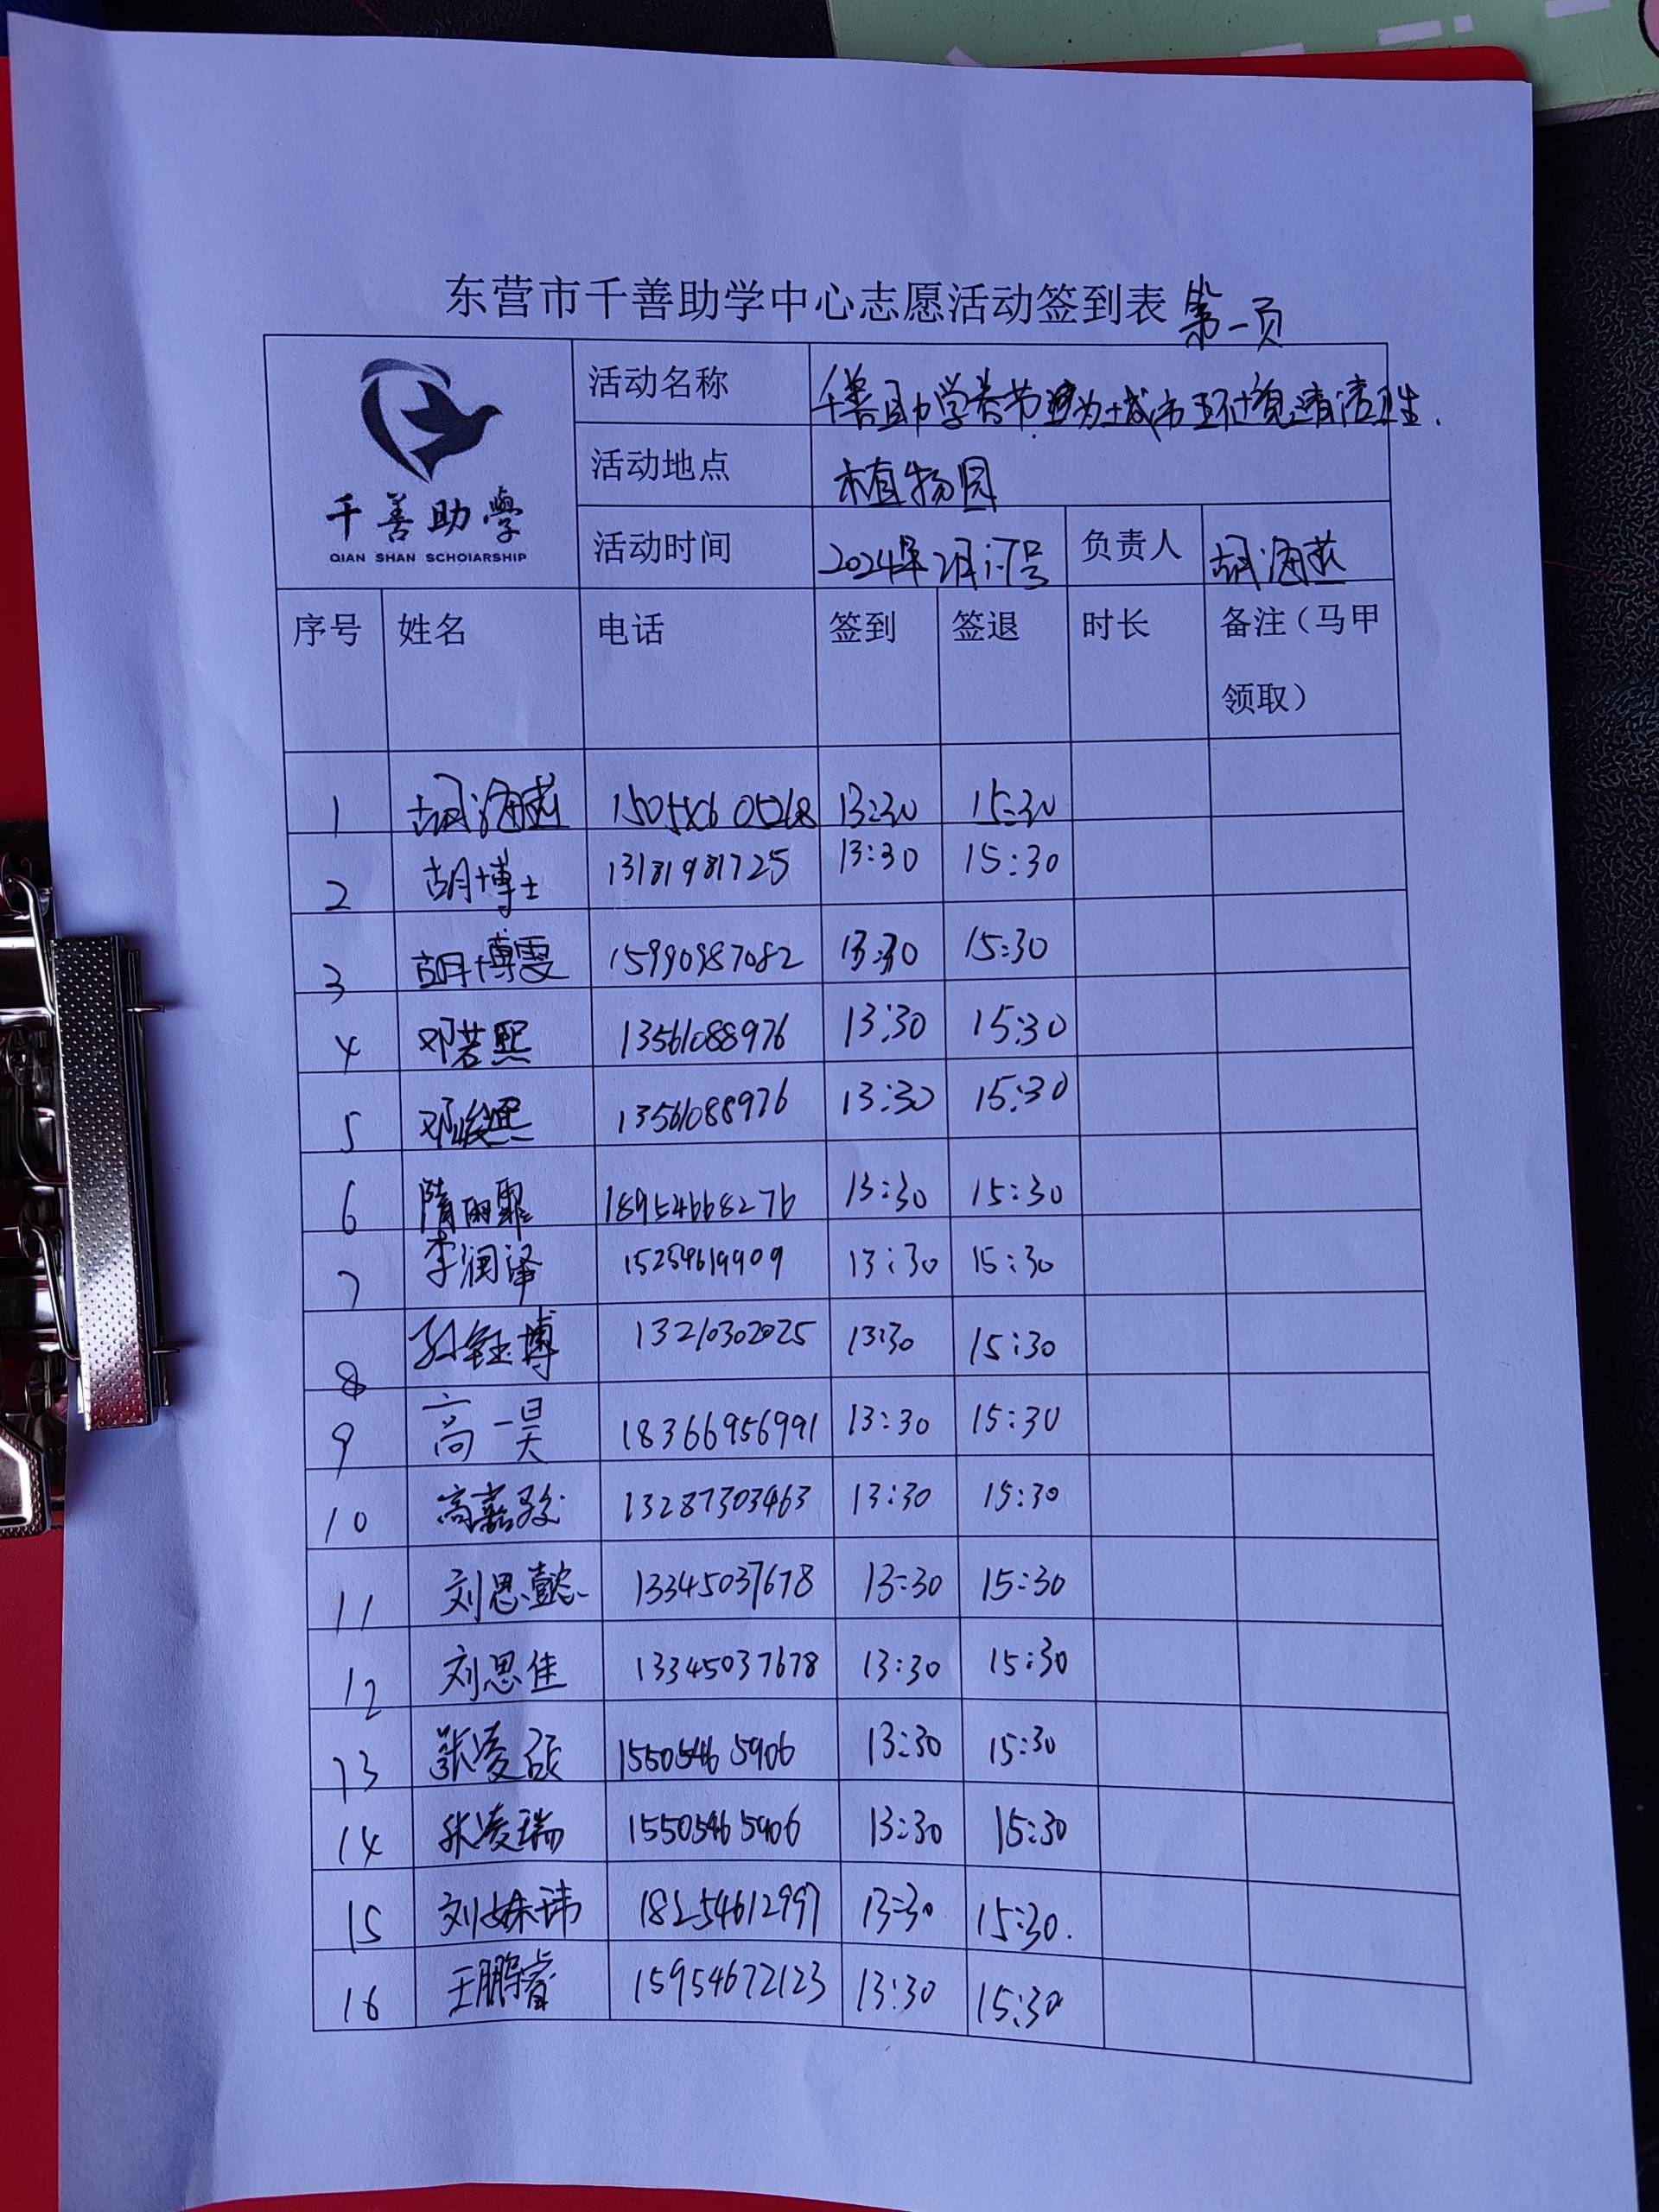 东营市千善助学中心志愿活动签到表 第一页
千善助学
QIAN SHAN SCHOlARSHIP
活动名称 千善助学春节 为城市环境清洁卫生.
活动地点 植物园
活动时间 2024年2月 号 负责人 胡海燕
序号 姓名 电话 签到 签退 时长 备注（马甲
领取）
1 胡海燕 13:30 15:30
2 胡博士 13181981725 13:30 15:30
3 胡博雯 15990987082 13:30 15:30
4 邓若熙 13561088976 13:30 15:30
5 邓俊熙 13561088976 13:30 15:30
6 隋雨霏 18954668276 13:30 15:30
7 李润泽 15254619909 13:30 15:30
8 孙钰博 13210302025 13:30 15:30
9 高一昊 18366956991 13:30 15:30
10 高嘉骏 13287303463 13:30 15:30
11 刘思懿 13345037678 13:30 15:30
12 刘思佳 13345037678 13:30 15:30
13 张凌硕 15505465906 13:30 15:30
14 张凌瑞 15505465906 13:30 15:30
15 刘姝玮 18254612997 13:30 15:30.
16 王鹏睿 15954672123 13:30 15:30